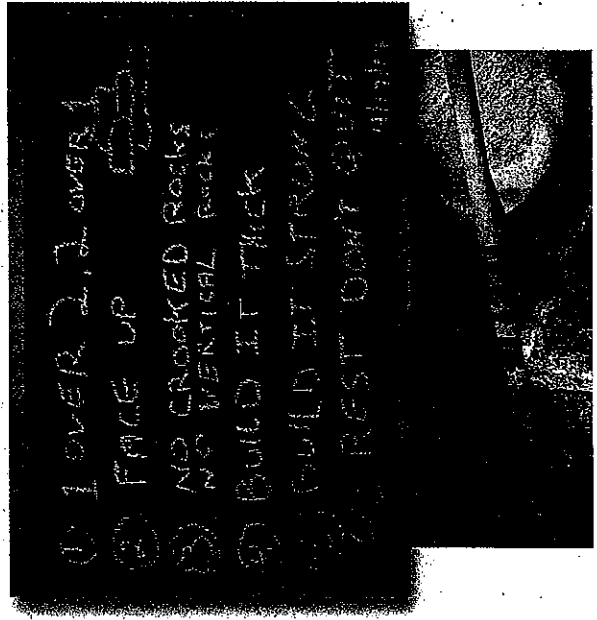 1 1 OVER 2, 2 OVER 1
2 FACE UP
3 NO CROOKED Rocks
NO VERTICAL Rocks
BUILD IT THICK
BUILD IT STRONG
REST DON'T QUIT